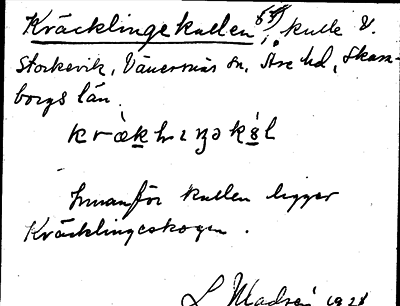 Kräcklingekullen, kulle V.
Storkevik, Vänersnäs sn, Åse hd, Skara-
borgs län.
Innanför kullen ligger
Kräcklingeskogen.
L Madsén 1928